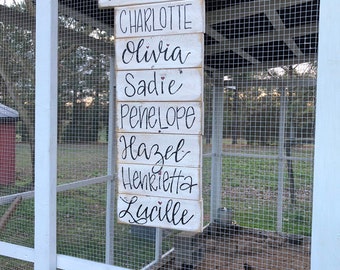 CHARLOTTE
Olivia
Sadie
PENELOPE
Hazel
Henrietta
Lucille